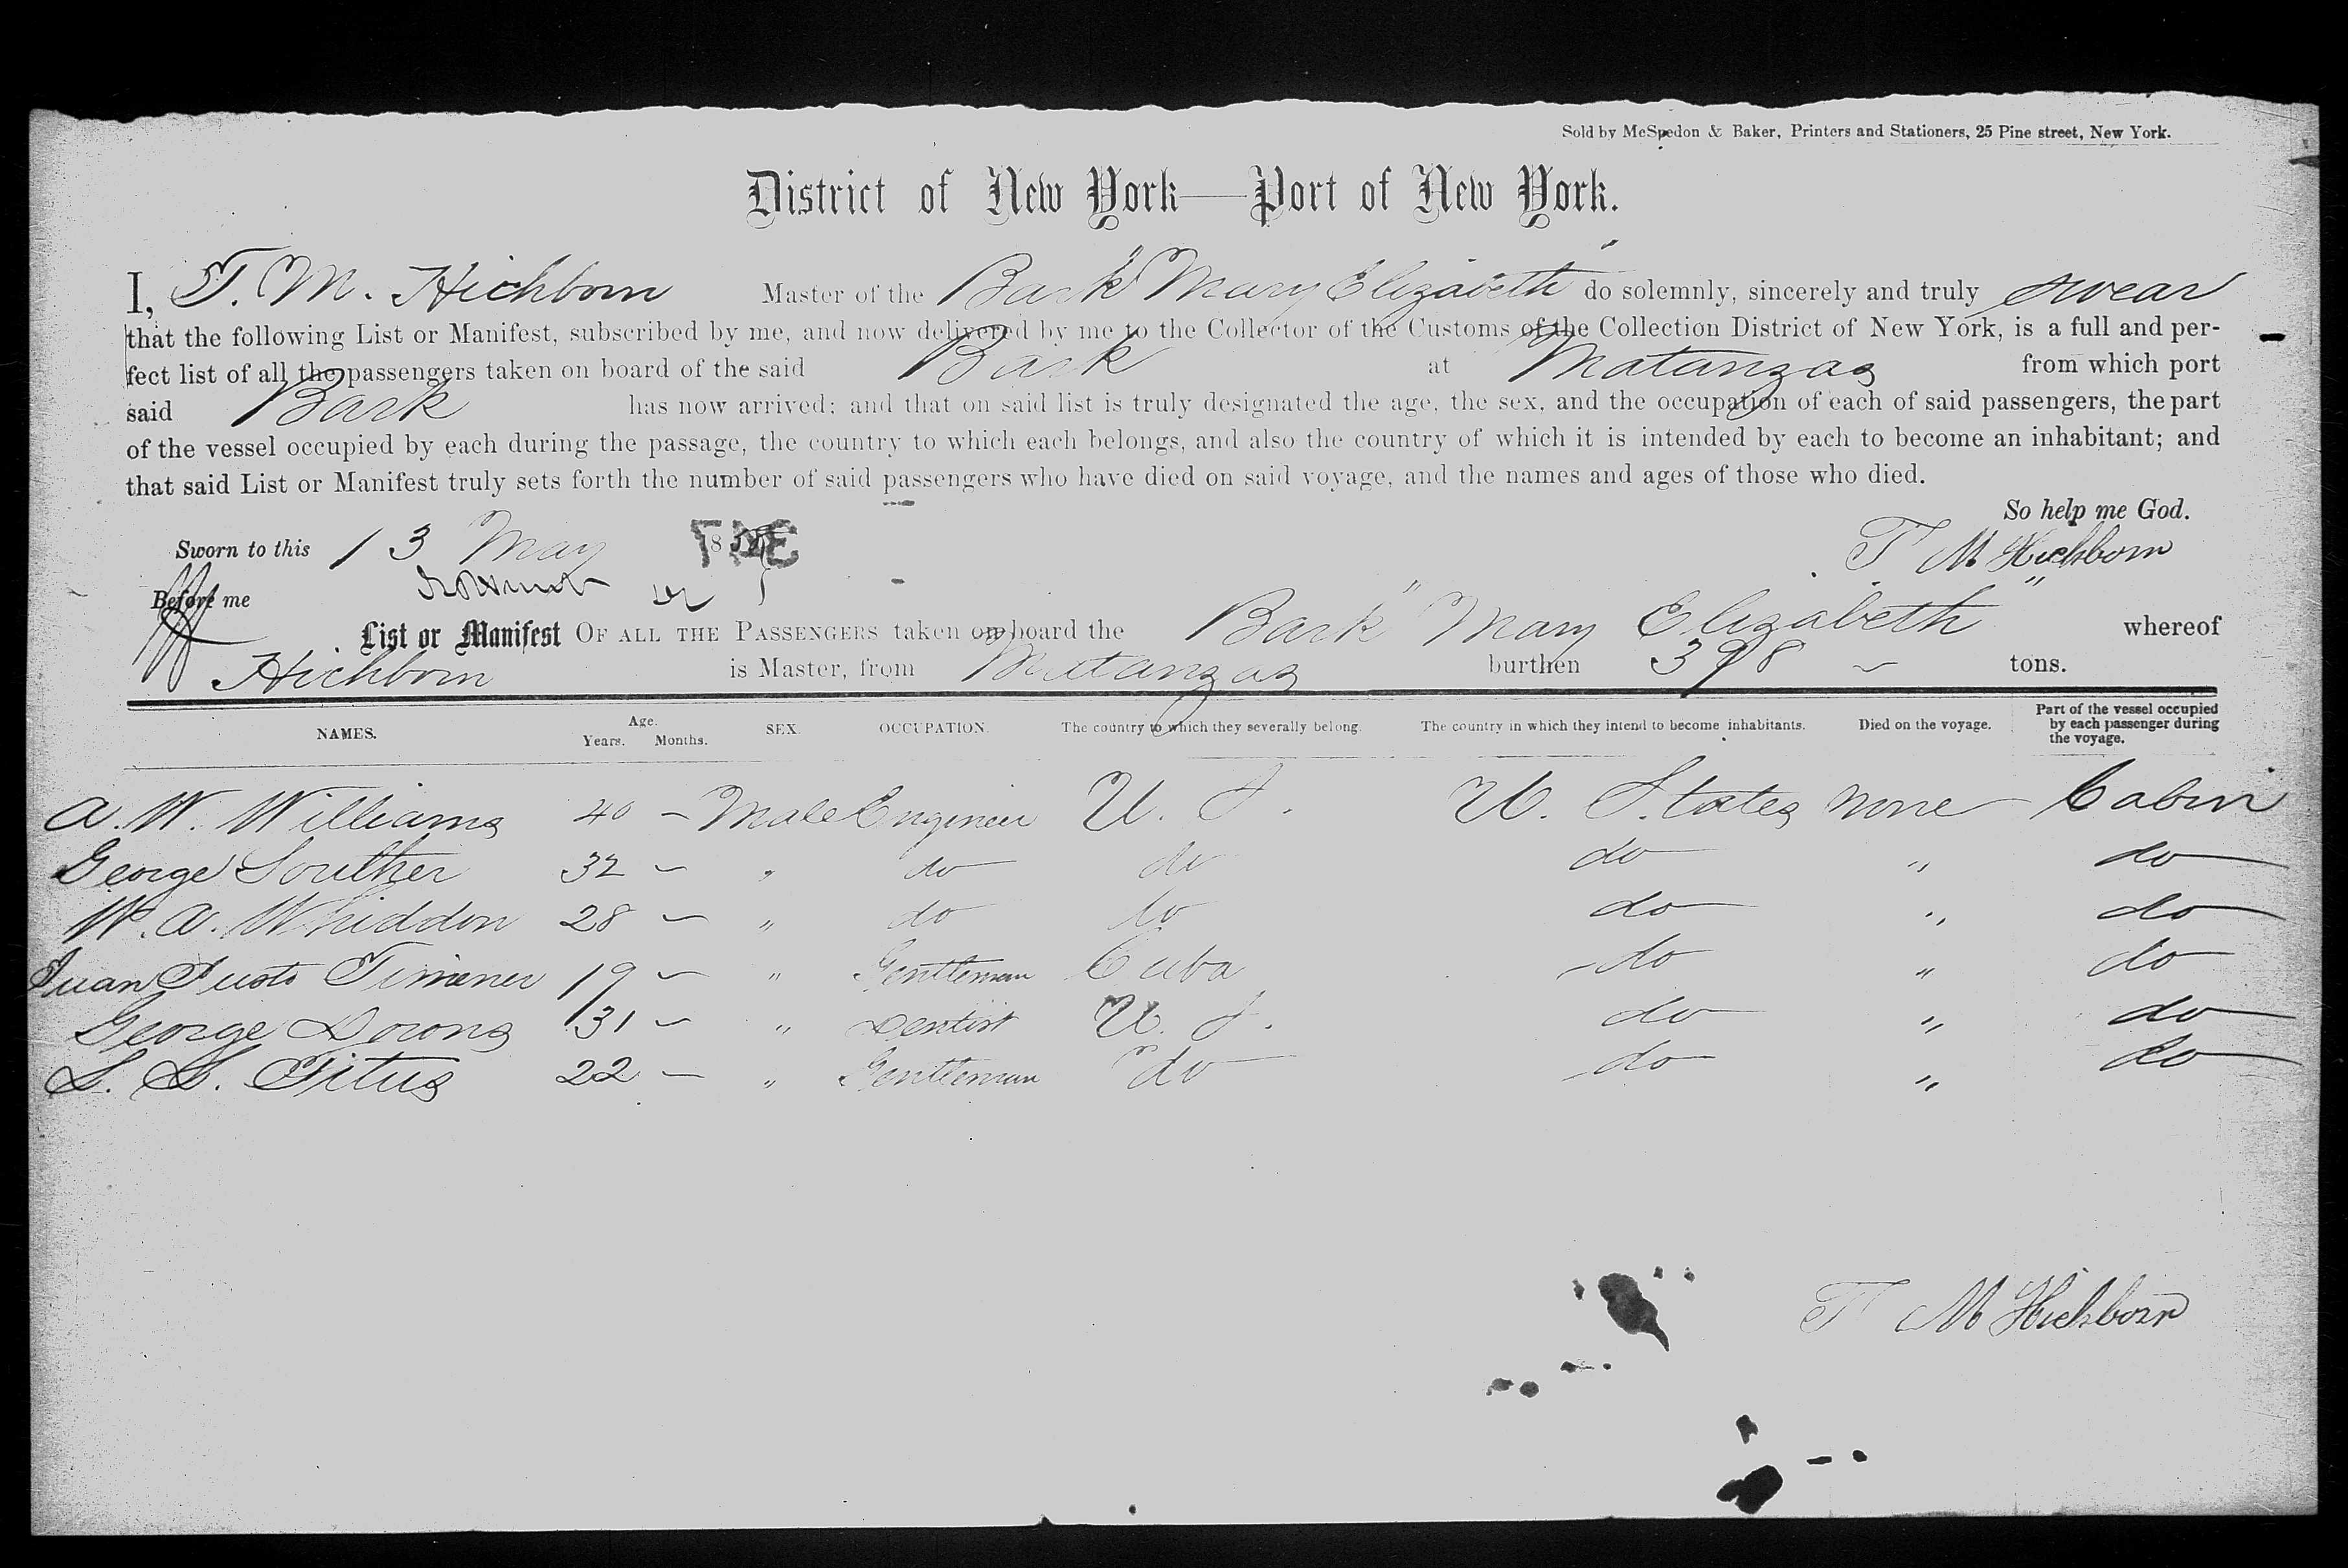 Sold by McSpedon & Baker, Printers and Stationers, 25 Pine street, New York.
District of New York—Port of New York.
I, T. M. Hichborn Master of the Bark "Mary Elizabeth" do solemnly, sincerely and truly swear
that the following List or Manifest, subscribed by me, and now delivered by me to the Collector of the Customs of the Collection District of New York, is a full and per-
fect list of all the passengers taken on board of the said Bark at Matanzas from which port
said Bark has now arrived; and that on said list is truly designated the age, the sex, and the occupation of each of said passengers, the part
of the vessel occupied by each during the passage, the country to which each belongs, and also the country of which it is intended by each to become an inhabitant; and
that said List or Manifest truly sets forth the number of said passengers who have died on said voyage, and the names and ages of those who died.
So help me God.
Sworn to this 13 May 185 T M Hichborn
Before me
List or Manifest OF ALL THE PASSENGERS taken on board the Bark "Mary Elizabeth" whereof
Hichborn is Master, from Matanzas burthen 398 tons.
NAMES. Age. Years. Months. SEX. OCCUPATION. The country to which they severally belong. The country in which they intend to become inhabitants. Died on the voyage. Part of the vessel occupied by each passenger during the voyage.
A. W. Williams 40 — Male Engineer U. S. U. States None Cabin
George Souther 32 — " do do do " do
W. A. Whiddon 28 — " do do do " do
Juan Justo Jimener 19 — " Gentleman Cuba do " do
George Downs 31 — " Dentist U. S. do " do
L. L. Titus 22 — " Gentleman do do " do
T M Hichborn